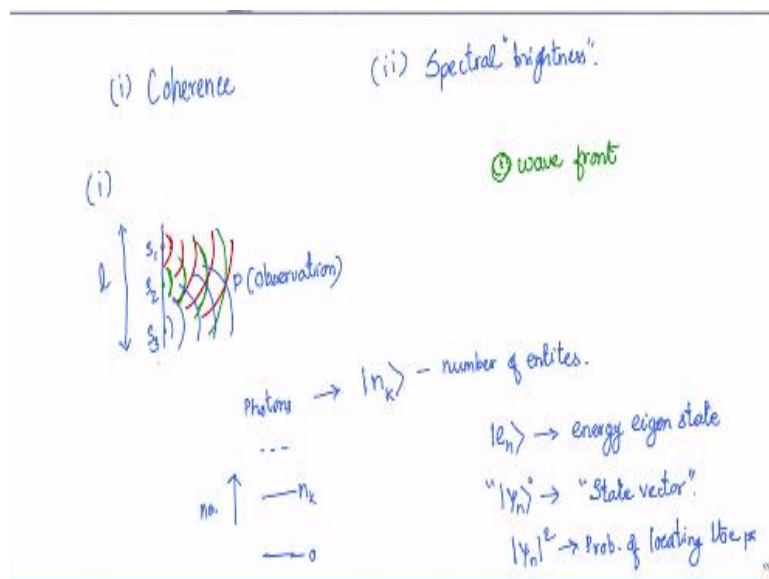 (i) Coherence
(ii) Spectral "brightness".
(i) wave front
(i)
l
S1
S2
S3
P (Observation)
Photons → |nk⟩ – number of entites.
...
no. ↑
nk
0
|en⟩ → energy eigen state
"|ψn⟩" → "State vector".
|ψn|² → Prob. of locating the